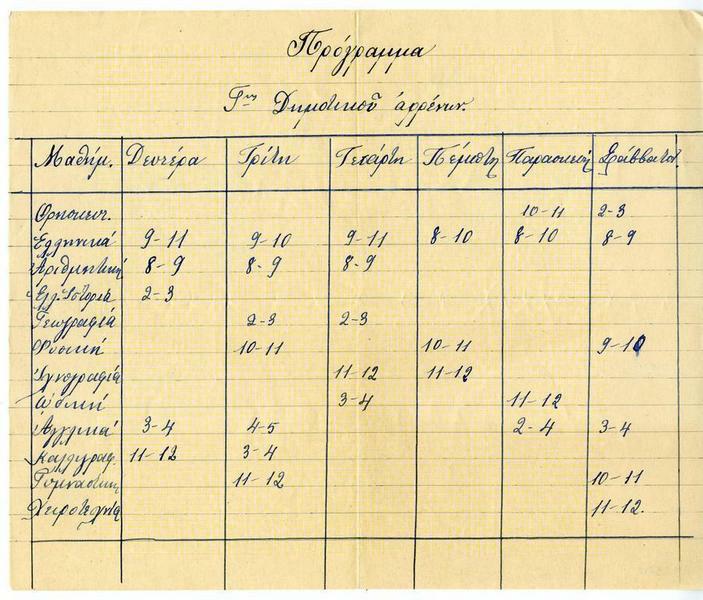 Πρόγραμμα
Γης Δημοτικοῦ ἀρρένων.
Μαθήμ. Δευτέρα Τρίτη Τετάρτη Πέμπτη Παρασκευή Σάββατον.
Θρησκευτ. 10-11 2-3
Ἑλληνικά 9-11 9-10 9-11 8-10 8-10 8-9
Ἀριθμητική 8-9 8-9 8-9
Ἑλ. Ἱστορία 2-3
Γεωγραφία 2-3 2-3
Φυσική 10-11 10-11 9-10
Ἰχνογραφία 11-12 11-12
Ὠδική 3-4 11-12
Ἀγγλικά 3-4 4-5 2-4 3-4
Καλλιγραφ. 11-12 3-4
Γυμναστική 11-12 10-11
Χειροτεχνία 11-12.